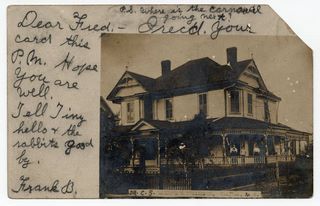 P.S. Where is the carnival
going next?
Dear Fred, - Rec'd. your
card this
P.M. Hope
you are
well.
Tell Tiny
hello & the
rabbits good
by.
Frank B.